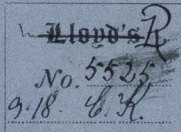 Lloyd's R
No. 5525
9.18. C.K.